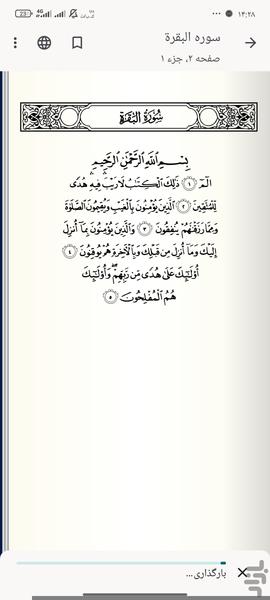 ۱۴:۲۸
4G
23
سوره البقرة
صفحه ۲، جزء ۱
سُورَةُ البَقَرَةِ
بِسْمِ ٱللَّهِ ٱلرَّحْمَٰنِ ٱلرَّحِيمِ
الٓمٓ ١ ذَٰلِكَ ٱلْكِتَٰبُ لَا رَيْبَ ۛ فِيهِ ۛ هُدًى
لِّلْمُتَّقِينَ ٢ ٱلَّذِينَ يُؤْمِنُونَ بِٱلْغَيْبِ وَيُقِيمُونَ ٱلصَّلَوٰةَ
وَمِمَّا رَزَقْنَٰهُمْ يُنفِقُونَ ٣ وَٱلَّذِينَ يُؤْمِنُونَ بِمَآ أُنزِلَ
إِلَيْكَ وَمَآ أُنزِلَ مِن قَبْلِكَ وَبِٱلْءَاخِرَةِ هُمْ يُوقِنُونَ ٤
أُو۟لَٰٓئِكَ عَلَىٰ هُدًى مِّن رَّبِّهِمْ ۖ وَأُو۟لَٰٓئِكَ
هُمُ ٱلْمُفْلِحُونَ ٥
بارگذاری...
بازار